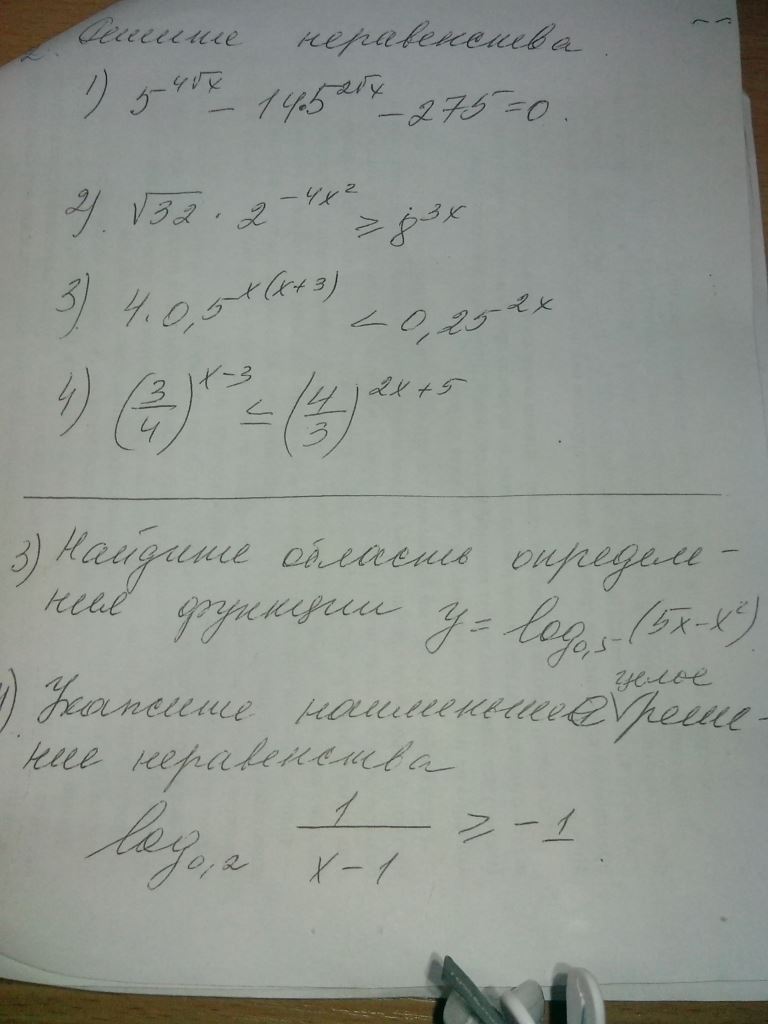 2. Решите неравенства
1) 5^{4√x} - 14·5^{2√x} - 275 = 0.
2). √32 · 2^{-4x²} ≥ 8^{3x}
3) 4·0,5^{x(x+3)} < 0,25^{2x}
4) (3/4)^{x-3} ≤ (4/3)^{2x+5}
3) Найдите область определе-
ния функции y = log_{0,5} (5x-x²)
4) Укажите наименьшее целое реше-
ние неравенства
log_{0,2} 1/(x-1) ≥ -1